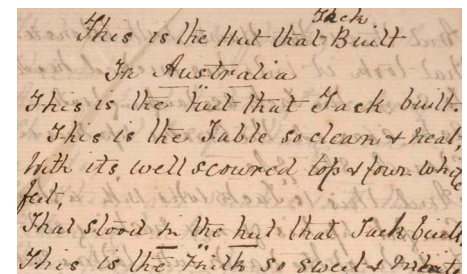 Jack
This is the Hut that Built
In Australia
This is the "Hut that Jack built.
This is the Table so clean & neat,
With its well scoured top & four white
feet,
That stood in the hut that Jack built
This is the "milk so sweet &